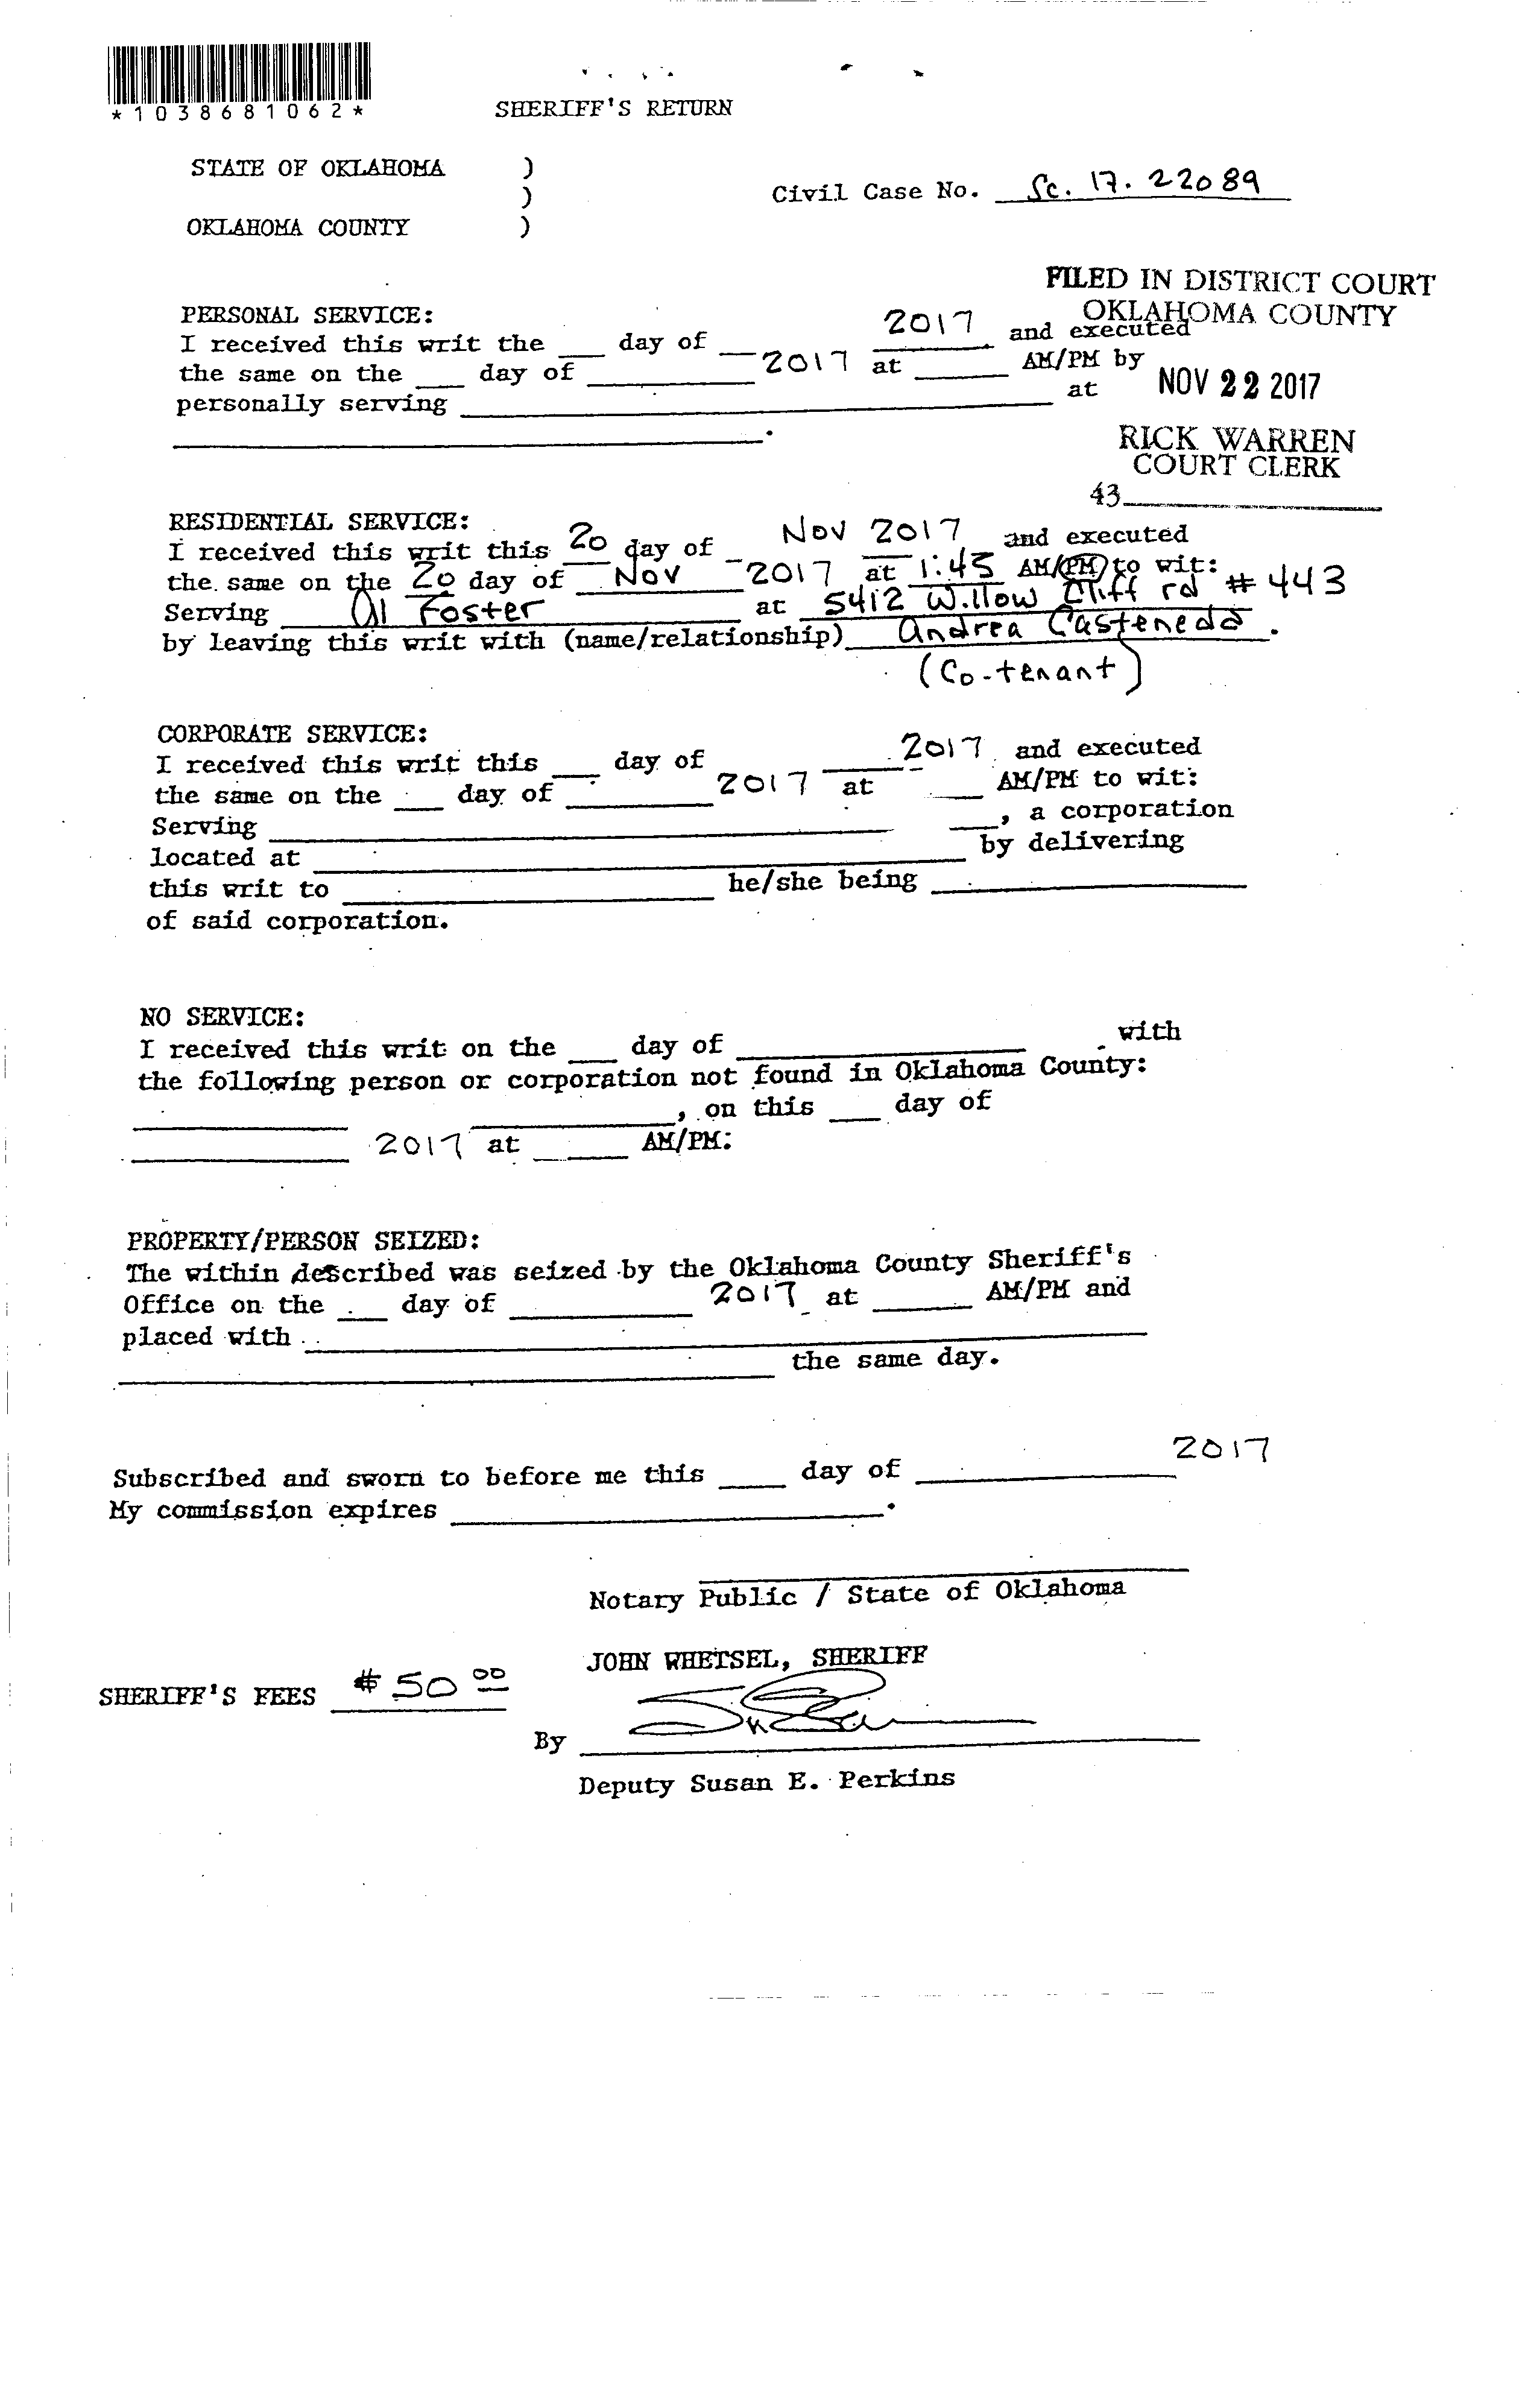 *1038681062*
SHERIFF'S RETURN
STATE OF OKLAHOMA )
)
OKLAHOMA COUNTY )
Civil Case No. Sc. 17. 22089
FILED IN DISTRICT COURT
OKLAHOMA COUNTY
NOV 22 2017
RICK WARREN
COURT CLERK
43
PERSONAL SERVICE:
I received this writ the ___ day of ___ 2017 and executed
the same on the ___ day of ___ 2017 at ___ AM/PM by
personally serving ___ at
___.
RESIDENTIAL SERVICE:
I received this writ this 20 day of Nov 2017 and executed
the same on the 20 day of Nov 2017 at 1:45 AM/PM to wit:
Serving Al Foster at 5412 Willow Cliff rd # 443
by leaving this writ with (name/relationship) Andrea Casteneda.
(Co-tenant)
CORPORATE SERVICE:
I received this writ this ___ day of ___ 2017 and executed
the same on the ___ day of ___ 2017 at ___ AM/PM to wit:
Serving ___, a corporation
located at ___ by delivering
this writ to ___ he/she being ___
of said corporation.
NO SERVICE:
I received this writ on the ___ day of ___ with
the following person or corporation not found in Oklahoma County:
___, on this ___ day of
___ 2017 at ___ AM/PM:
PROPERTY/PERSON SEIZED:
The within described was seized by the Oklahoma County Sheriff's
Office on the ___ day of ___ 2017 at ___ AM/PM and
placed with ___
___ the same day.
Subscribed and sworn to before me this ___ day of ___ 2017
My commission expires ___.
Notary Public / State of Oklahoma
JOHN WHETSEL, SHERIFF
SHERIFF'S FEES $50 00
By
Deputy Susan E. Perkins